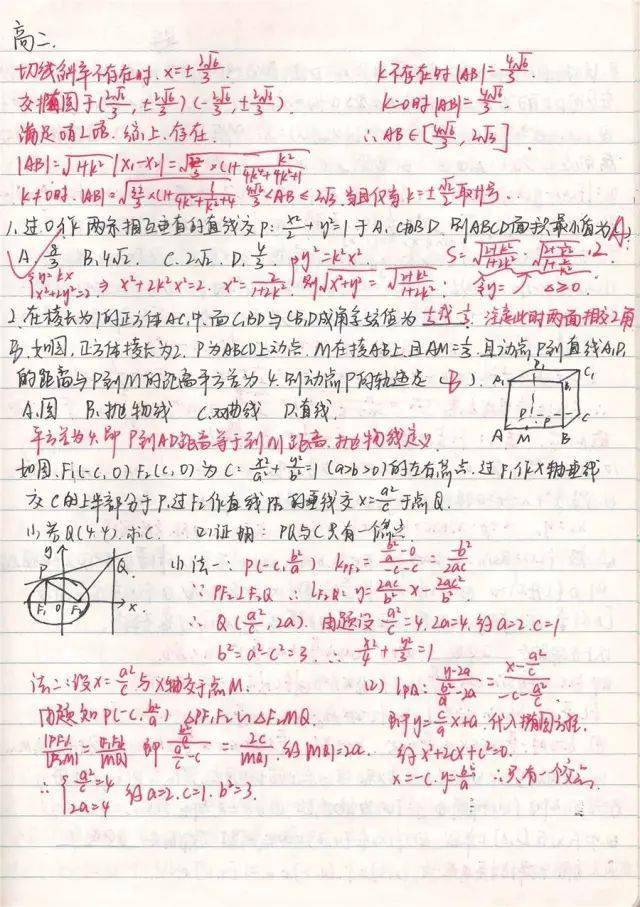 高二.
切线斜率不存在时. x=±2√6/3.
k不存在时 |AB|=4√6/3.
交椭圆于(2√6/3, ±2√6/3) (-2√6/3, ±2√6/3).
k=0时 |AB|=4√6/3.
满足 综上.存在.
∴ AB∈[4√6/3, 2√3].
|AB|=√1+k² |x₁-x₂|=√32/3×(1+k²/4k⁴+4k²+1
k≠0时. |AB|=√32/3×(1+1/4k²+1/k²+4 4√6/3<AB≤2√3. 当且仅当k=±√2/2取等号.
1. 过O作两条相互垂直的直线交P: x²/2+y²=1于A.C和B.D 则ABCD面积最小值为A.
A. 8/3 B. 4√2. C. 2√2. D. 4/3. y²=k²x².
S=√2+2k²/1+2k² · 2.
{y=kx x²+2y²=2. ⇒ x²+2k²x²=2. x²=2/1+2k² 则√x²+y²=√2+2k²/1+2k². Δ≥0
2. 在棱长为1的正方体AC₁中.面C₁BD与CB₁D₁成角余弦值为1或 1/3. 注意此时两面相交2角
3. 如图,正方体棱长为2. P为ABCD上动点. M在棱AB上.且AM=1/3. 且动点P到直线A₁D₁
的距离与P到M的距离平方差为4.则动点P的轨迹是(B).
A.圆 B.抛物线 C.双曲线 D.直线.
D₁ C₁ A₁ B₁ D C P A M B
平方差为4.即P到AD距离等于到M距离.抛物线定义
如图.F₁(-c,0) F₂(c,0)为C: x²/a²+y²/b²=1 (a>b>0)的左右焦点.过F₁作X轴垂线
交C的上半部分于P.过F₂作直线PF₂的垂线交x=a²/c于点Q.
(1)若Q(4,4).求C. (2)证明: PQ与C只有一个交点.
y P Q F₁ O F₂ x
(1)法一: P(-c, b²/a) k_PF₂=b²/a-0/-c-c=-b²/2ac
∵ PF₂⊥F₂Q ∴ l_F₂Q: y=2ac/b² x-2ac²/b².
∴ Q(a²/c, 2a). 由题设 a²/c=4. 2a=4. 得a=2. c=1
b²=a²-c²=3. ∴ x²/4+y²/3=1
法二:设x=a²/c与X轴交于点M.
由题知P(-c, b²/a) △PF₁F₂∽△F₂MQ.
|PF₁|/|F₂M|=|F₁F₂|/|MQ| 即 b²/a/a²/c-c=2c/|MQ|. 得|MQ|=2a.
∴ {a²/c=4 2a=4 得a=2. c=1. b²=3.
(2) l_PQ: y-2a/b²/a-2a=x-a²/c/-c-a²/c
即y=c/a x+a. 代入椭圆方程.
得x²+2cx+c²=0.
x=-c. y=b²/a ∴只有一个交点.